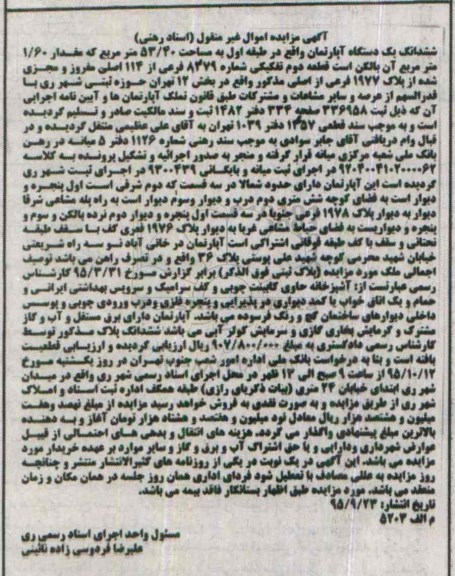 آگهی مزایده اموال غیر منقول (اسناد رهنی)
ششدانگ یک دستگاه آپارتمان واقع در طبقه اول به مساحت ۵۳/۴۰ متر مربع که مقدار ۱/۶۰
متر مربع آن بالکن است قطعه دوم تفکیکی شماره ۸۴۷۹ فرعی از ۱۱۴ اصلی مفروز و مجزی
شده از پلاک ۱۹۷۷ فرعی از اصلی مذکور واقع در بخش ۱۲ تهران حوزه ثبتی شهر ری با
قدرالسهم از عرصه و سایر مشاعات و مشترکات طبق قانون تملک آپارتمان ها و آیین نامه اجرایی
آن که ذیل ثبت ۳۳۶۹۵۸ صفحه ۳۳۴ دفتر ۱۴۸۲ ثبت و سند مالکیت صادر و تسلیم گردیده
است و به موجب سند قطعی ۱۳۵۷ دفتر ۱۰۳۹ تهران به آقای علی عظیمی منتقل گردیده و در
قبال وام دریافتی آقای جابر سوادی به موجب سند رهنی شماره ۱۱۲۶ دفتر ۵ میانه در رهن
بانک ملی شعبه مرکزی میانه قرار گرفته و منجر به صدور اجرائیه و تشکیل پرونده به کلاسه
۹۲۰۴۰۰۴۱۰۲۰۰۰۰۶۲ در اجرای ثبت میانه و بایگانی ۹۳۰۰۴۳۹ در اجرای ثبت شهر ری
گردیده است این آپارتمان دارای حدود شمالا در سه قسمت که دوم شرقی است اول پنجره و
دیوار است به فضای کوچه شش متری دوم درب و دیوار وسوم دیوار است به راه پله مشاعی شرقا
دیوار به دیوار پلاک ۱۹۷۸ فرعی جنوبا در سه قسمت اول پنجره و دیوار دوم نرده بالکن و سوم
پنجره و دیواریست به فضای حیاط مشاعی غربا به دیوار پلاک ۱۹۷۶ فعری کف با سقف طبقه
تحتانی و سقف با کف طبقه فوقانی اشتراکی است آپارتمان در خانی آباد نو سه راه شریعتی
خیابان شهید محرمی کوچه شهید علی یوستی پلاک ۳۶ واقع و در تصرف راهن می باشد توصیف
اجمالی ملک مورد مزایده (پلاک ثبتی فوق الذکر) برابر گزارش مورخ ۹۵/۳/۳۱ کارشناس
رسمی عبارتست از: آشپزخانه حاوی کابینت چوبی و کف سرامیک و سرویس بهداشتی ایرانی و
حمام و یک اتاق خواب با کمد دیواری در پذیرایی و پنجره فلزی ودرب ورودی چوبی و پوسس
داخلی دیوارهای ساختمان گچ و رنگ فرسوده می باشد. آپارتمان دارای برق مستقل و آب و گاز
مشترک و گرمایش بخاری گازی و سرمایش کولر آبی می باشد ششدانگ پلاک مذکور توسط
کارشناس رسمی دادگستری به مبلغ ۹۰۷/۸۰۰/۰۰۰ ریال ارزیابی گردیده و ارزیابی قطعیت
یافته است و بنا به درخواست بانک ملی اداره امور شعب جنوب تهران در روز یکشنبه مورخ
۹۵/۱۰/۱۲ از ساعت ۹ صبح الی ۱۲ ظهر در محل اجرای اسناد رسمی شهر ری واقع در میدان
شهر ری ابتدای خیابان ۲۴ متری (بیات ذکریای رازی) طبقه همکف اداره ثبت اسناد و املاک
شهر ری از طریق مزایده و به صورت نقدی به فروش خواهد رسید مزایده از مبلغ نهصد وهفت
میلیون و هشتصد هزار ریال معادل نود میلیون و هفتصد و هشتاد هزار تومان آغاز و به دهنده
بالاترین مبلغ پیشنهادی واگذار می گردد. هزینه های انتقال و بدهی های احتمالی از قبیل
عوارض شهرداری ودارایی و یا حق اشتراک آب و برق و گاز و سایر موارد بر عهده خریدار مورد
مزایده می باشد. این آگهی در یک نوبت در یکی از روزنامه های کثیرالانتشار منتشر و چنانچه
روز مزایده به عللی مصادف با تعطیل شود فردای اداری همان روز جلسه در همان مکان و زمان
منعقد می باشد. مورد مزایده طبق اظهار بستانکار فاقد بیمه می باشد.
تاریخ انتشار: ۹۵/۹/۲۳
م الف ۵۲۰۳
مسئول واحد اجرای اسناد رسمی ری
علیرضا فردوسی زاده نائینی